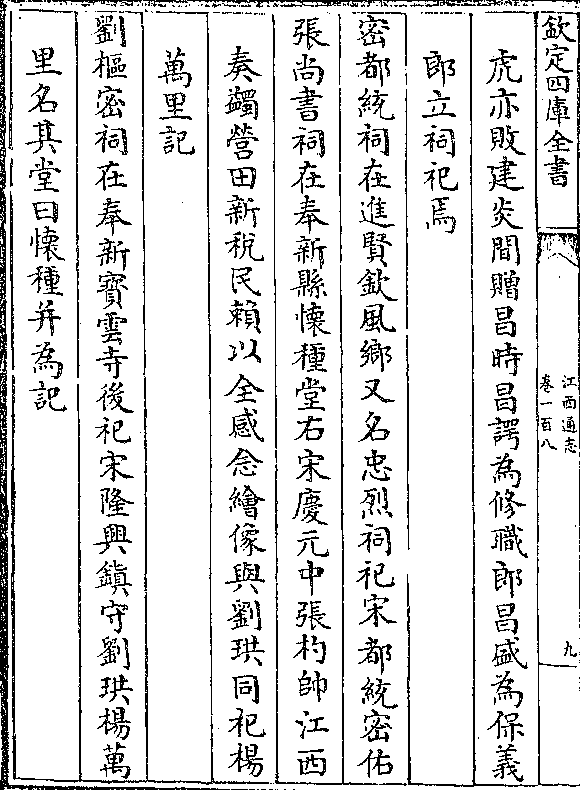 欽定四庫全書
江西通志
卷一百八
九
虎亦敗建炎間贈昌時昌諤為修職郎昌盛為保義
郎立祠祀焉
密都統祠在進賢欽風鄉又名忠烈祠祀宋都統密佑
張尚書祠在奉新縣懷種堂右宋慶元中張杓帥江西
奏蠲營田新稅民賴以全感念繪像與劉珙同祀楊
萬里記
劉樞密祠在奉新寶雲寺後祀宋隆興鎮守劉珙楊萬
里名其堂曰懷種并為記